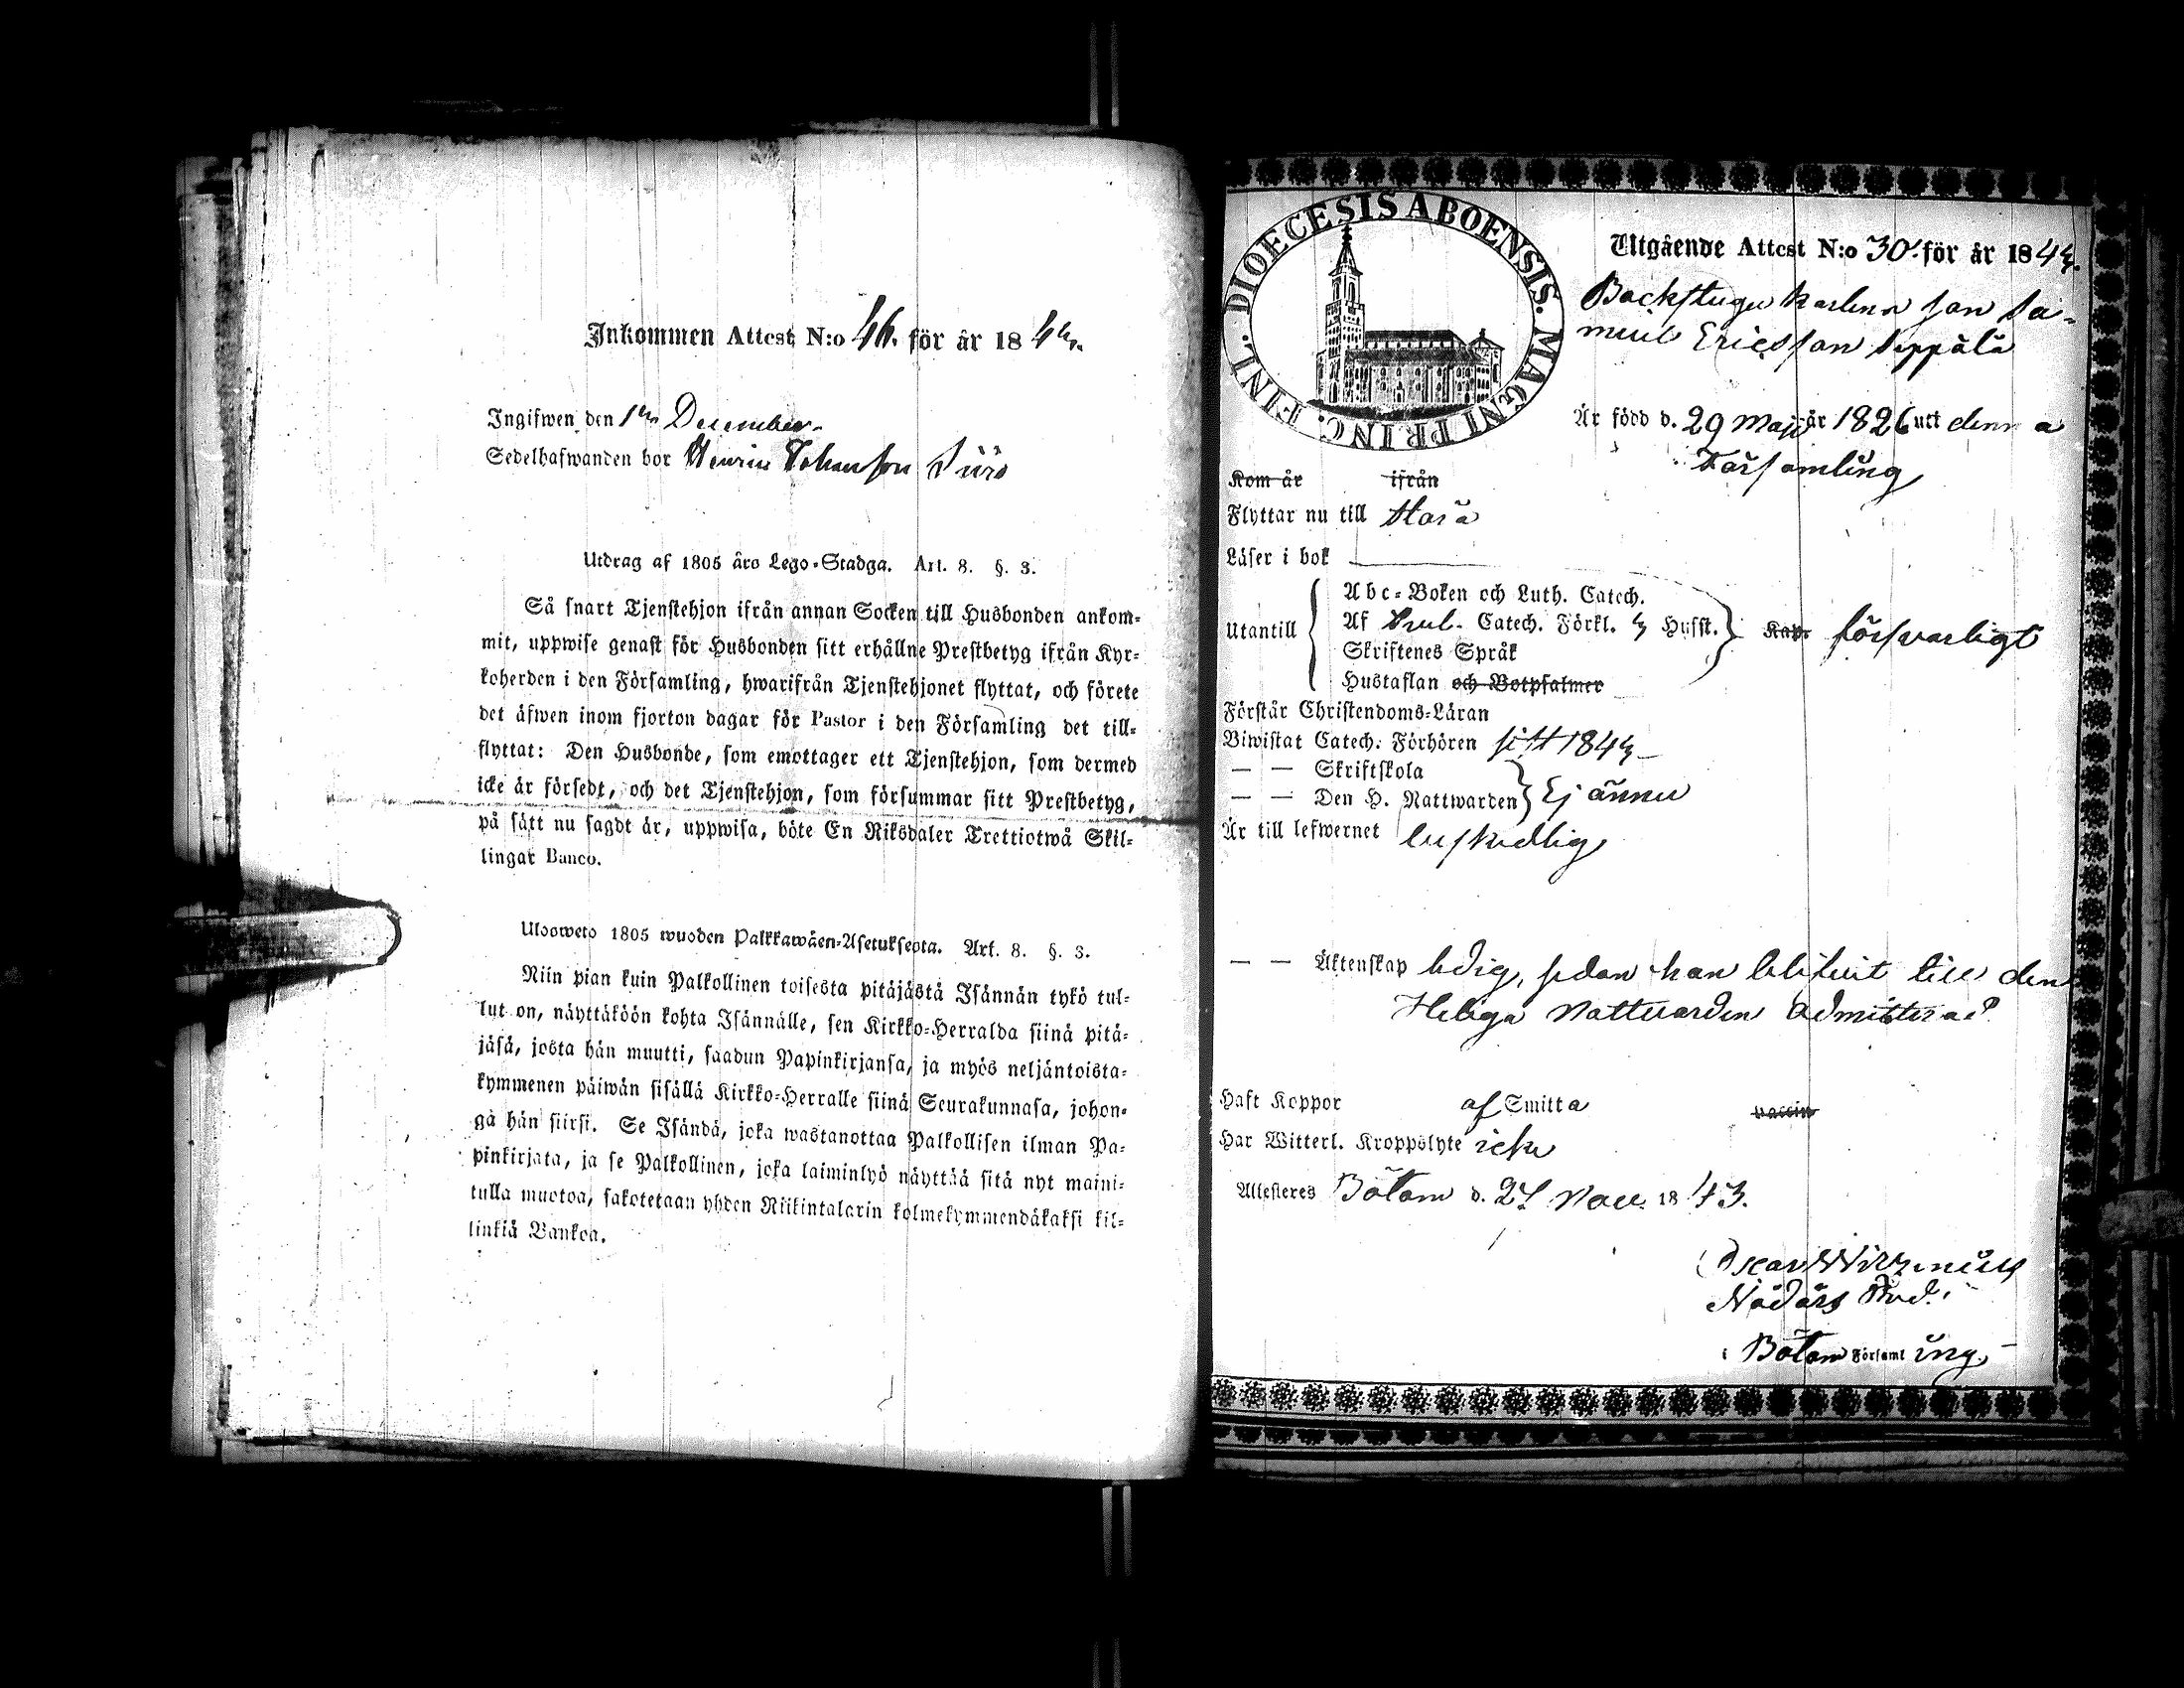 Inkommen Attest N:o 46. för år 184
Ingifwen den December.
Sedelhafwanden bor Johansson
Utdrag af 1805 års Lego-Stadga. Art. 8. §. 3.
Så snart Tjenstehjon ifrån annan Socken till Husbonden ankom-
mit, uppwise genast för Husbonden sitt erhållne Prestbetyg ifrån Kyr-
koherden i den Församling, hwarifrån Tjenstehjonet flyttat, och förete
det äfwen inom fjorton dagar för Pastor i den Församling det till-
flyttat: Den Husbonde, som emottager ett Tjenstehjon, som dermed
icke är försedt, och det Tjenstehjon, som försummar sitt Prestbetyg,
på sätt nu sagdt är, uppwisa, böte En Riksdaler Trettiotwå Skil-
lingar Banco.
Ulosweto 1805 wuoden Palkkawäen-Asetuksesta. Art. 8. §. 3.
Niin pian kuin Palkollinen toisesta pitäjästä Isännän tykö tul-
lut on, näyttäköön kohta Isännälle, sen Kirkko-Herralda siinä pitä-
jäsä, josta hän muutti, saadun Papinkirjansa, ja myös neljäntoista-
kymmenen päiwän sisällä Kirkko-Herralle siinä Seurakunnasa, johon-
ga hän siirsi. Se Isändä, joka wastanottaa Palkollisen ilman Pa-
pinkirjata, ja se Palkollinen, joka laiminlyö näyttää sitä nyt maini-
tulla muotoa, sakotetaan yhden Riikintalarin kolmekymmendäkaksi kil-
linkiä Bankoa.
DIOECESIS ABOENSIS. MAGNI PRINC. FINL.
Utgående Attest N:o 30. för år 1843.
Backstugu karlens son Sa-
muel Ericsson Seppälä
Är född d. 29 Maji år 1826 utt denna
Församling
Kom år ifrån
Flyttar nu till
Läser i bok
Utantill
Abc-Boken och Luth. Catech.
Af Catech. Förkl. Hufst.
Skriftenes Språk
Hustaflan och Botpsalmer
Kap. försvarligt
Förstår Christendoms-Läran
Biwistat Catech. Förhören sitt 1843
— — Skriftskola
— — Den H. Nattwarden Ej ännu
Är till lefwernet oklanderlig
— — Äktenskap ledig, sedan han blifvit till den
Heliga Nattvarden admitterad.
Haft Koppor af Smitta vaccin
Har Witterl. Kroppslyte icke
Attesteres Bötom d. 27 Nov. 1843.
Oscar
Nådårs Pred.
i Bötom Församling.